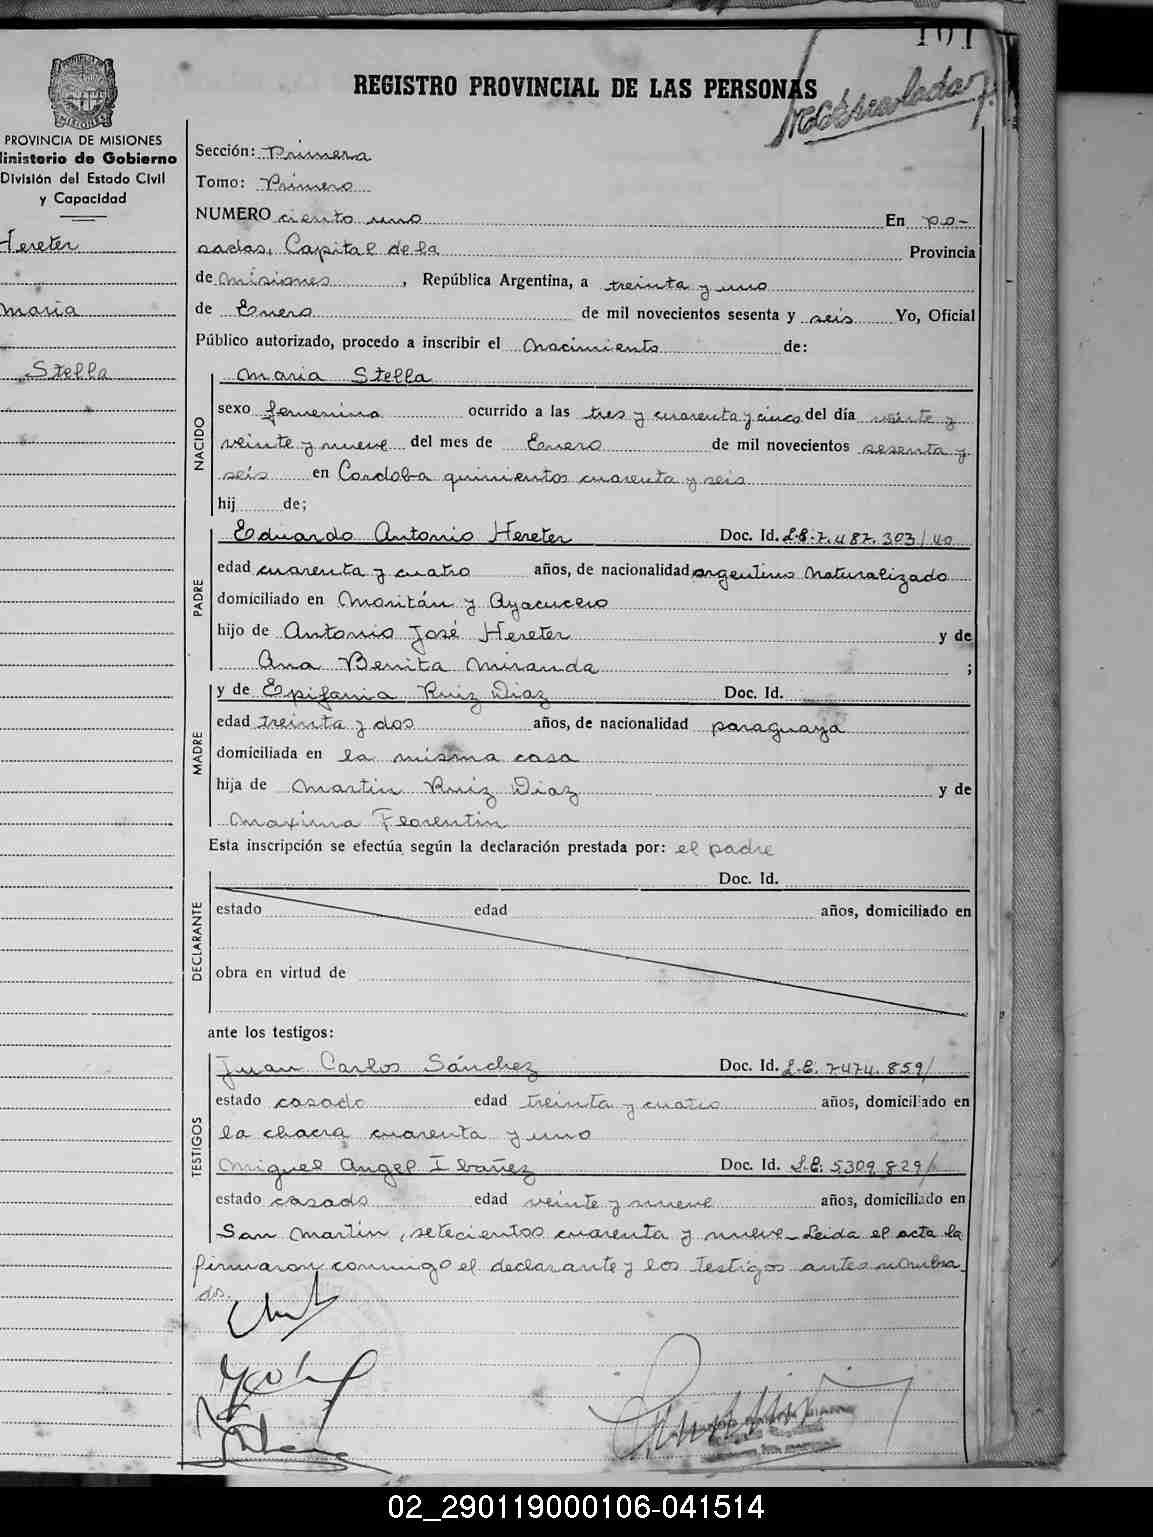 101
REGISTRO PROVINCIAL DE LAS PERSONAS
PROVINCIA DE MISIONES
Ministerio de Gobierno
División del Estado Civil
y Capacidad
Hereter
Maria
Stella
Sección: Primera
Tomo: Primero
NUMERO ciento uno En Po-
sadas, Capital de la Provincia
de Misiones, República Argentina, a treinta y uno
de Enero de mil novecientos sesenta y seis Yo, Oficial
Público autorizado, procedo a inscribir el Nacimiento de:
NACIDO
Maria Stella
sexo femenino ocurrido a las tres y cuarenta y cinco del día veinte y
veinte y nueve del mes de Enero de mil novecientos sesenta y
seis en Cordoba quinientos cuarenta y seis
hij de;
PADRE
Eduardo Antonio Hereter Doc. Id. L.E. 7.487.303/40
edad cuarenta y cuatro años, de nacionalidad argentino Naturalizado
domiciliado en Moritán y Ayacucho
hijo de Antonio José Hereter y de
Ana Benita Miranda ;
MADRE
y de Epifania Ruiz Diaz Doc. Id.
edad treinta y dos años, de nacionalidad paraguaya
domiciliada en la misma casa
hija de Martin Ruiz Diaz y de
Maxima Florentin
Esta inscripción se efectúa según la declaración prestada por: el padre
DECLARANTE
Doc. Id.
estado edad años, domiciliado en
obra en virtud de
ante los testigos:
TESTIGOS
Juan Carlos Sánchez Doc. Id. L.E. 7474.859/
estado casado edad treinta y cuatro años, domiciliado en
la chacra cuarenta y uno
Miguel Angel Ibañez Doc. Id. L.E. 5309.829/
estado casado edad veinte y nueve años, domiciliado en
San Martín, setecientos cuarenta y nueve - Leida el acta la
firmaron conmigo el declarante y los testigos antes nombra-
dos.
02_290119000106-041514